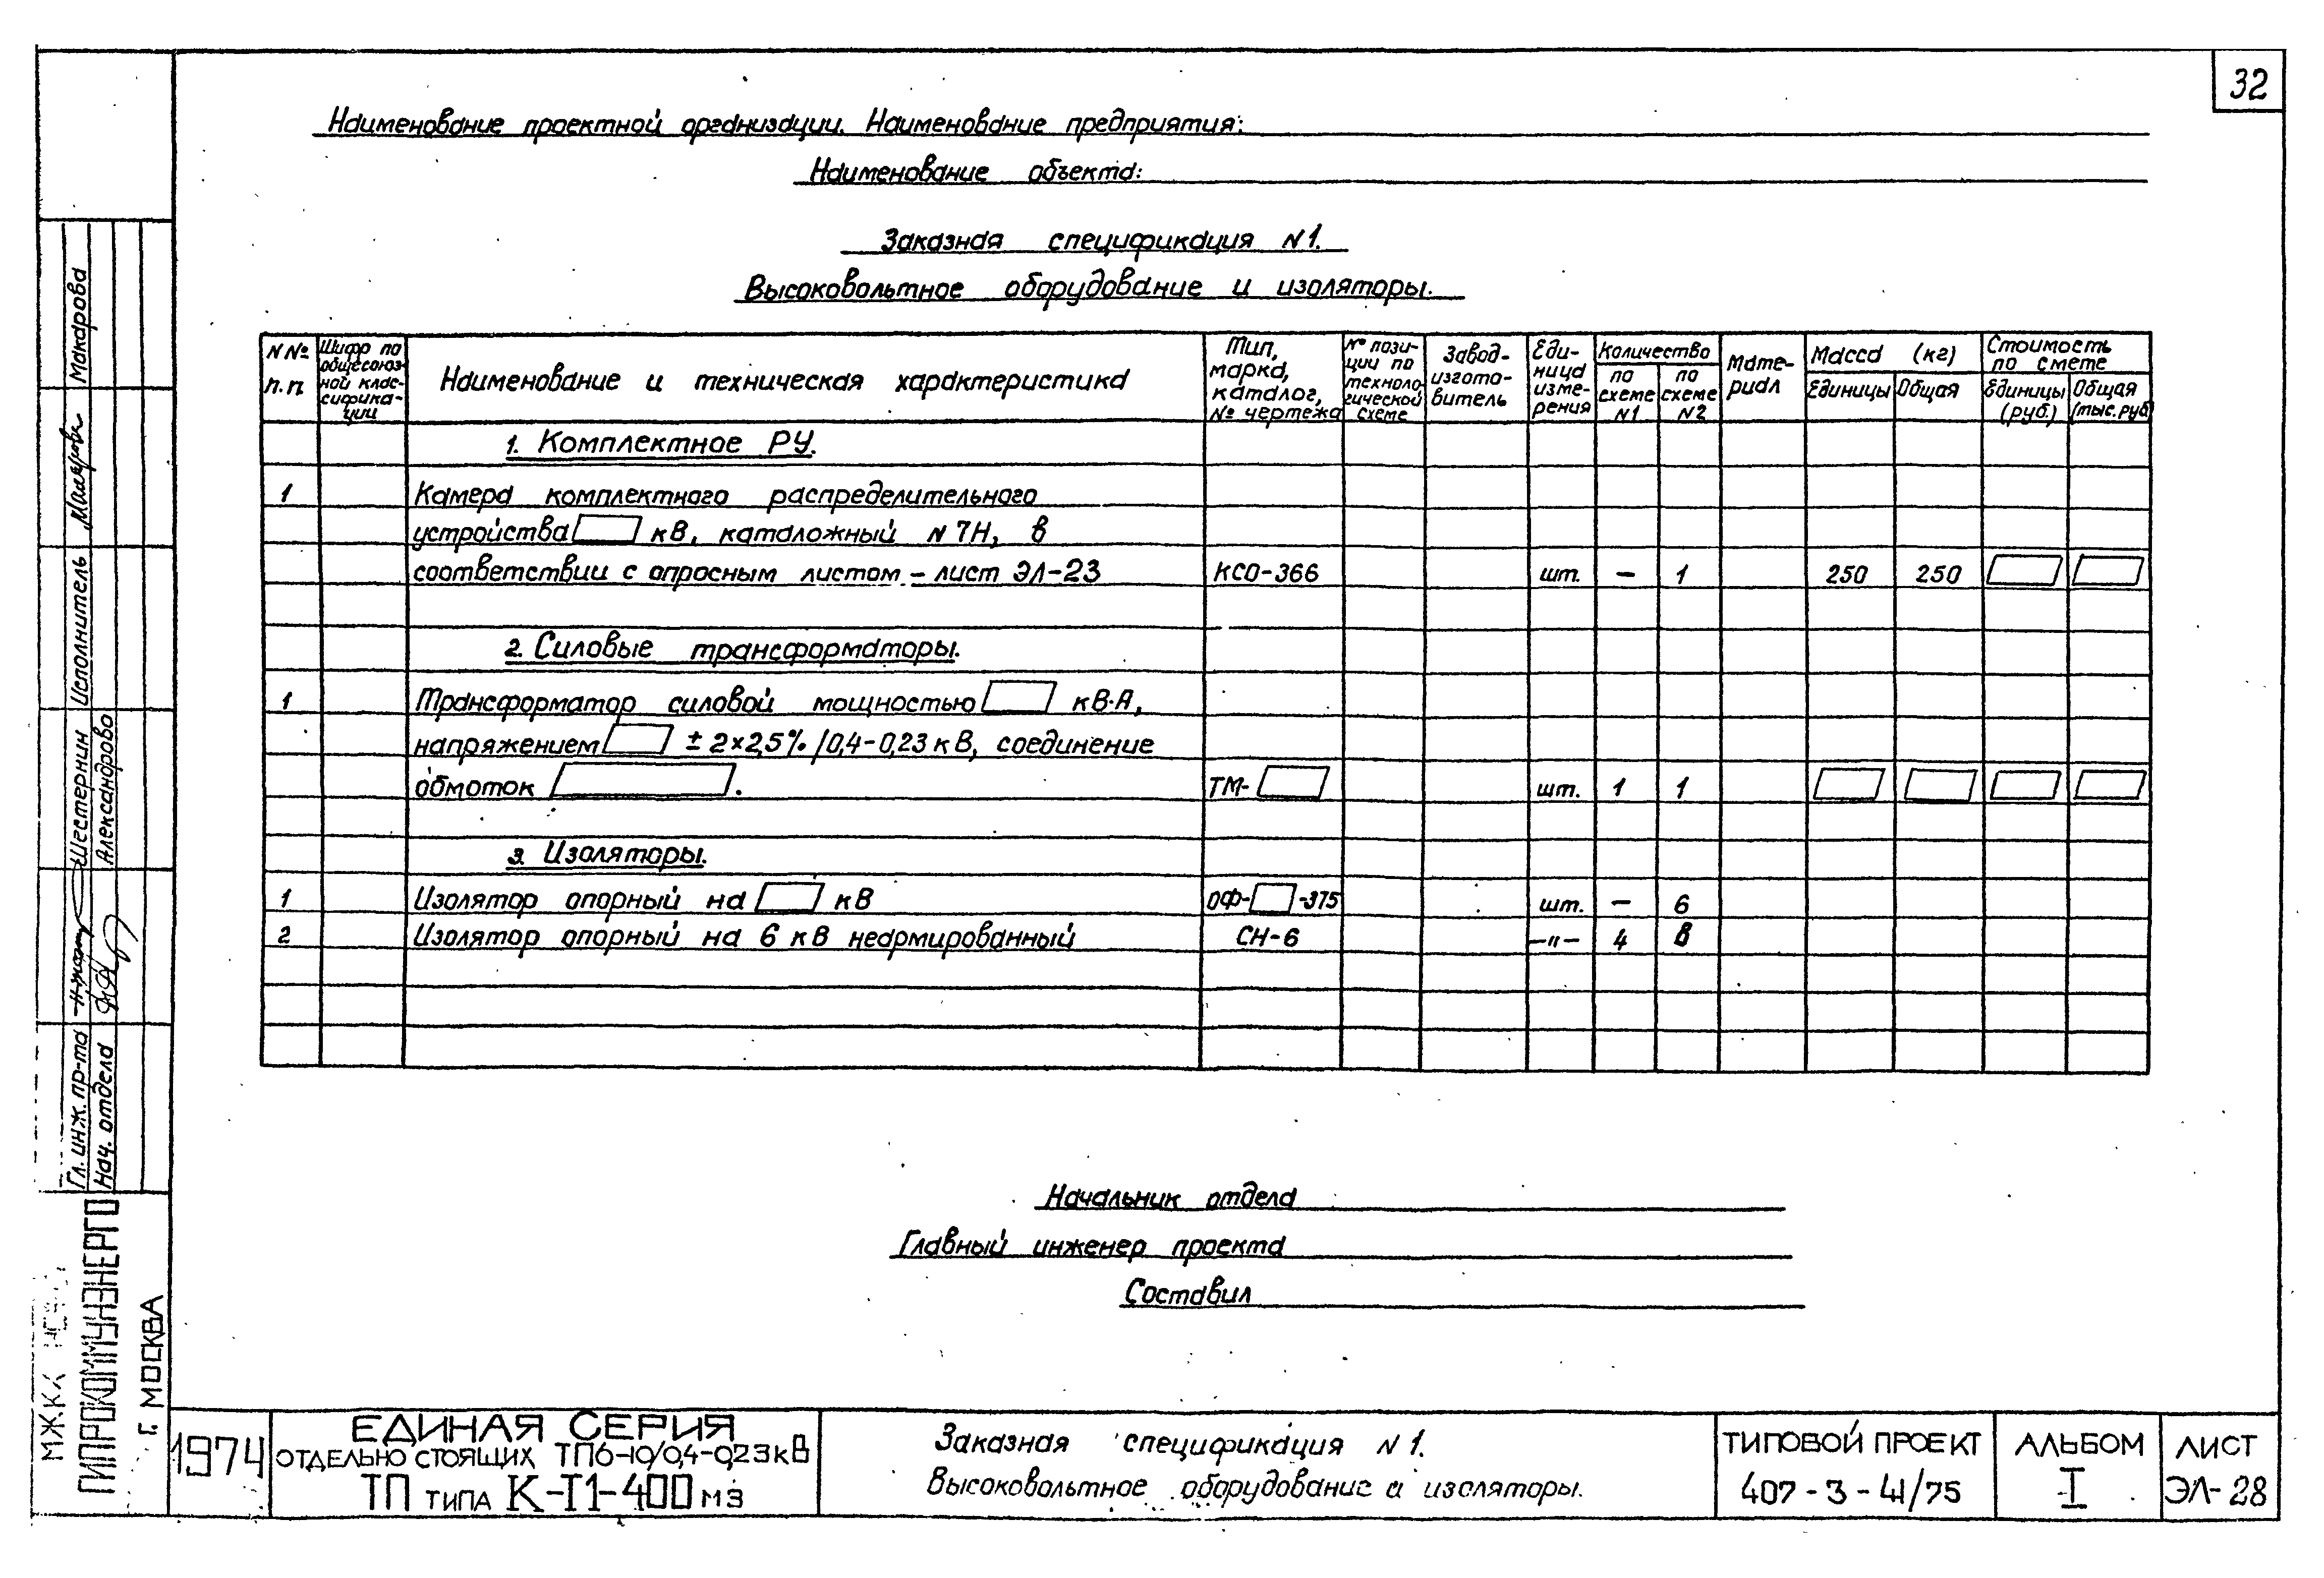 32
Наименование проектной организации. Наименование предприятия:
Наименование объекта:
Заказная спецификация N1.
Высоковольтное оборудование и изоляторы.
N№ п.п.
Шифр по общесоюз-
ной клас-
сифика-
ции
Наименование и техническая характеристика
Тип,
марка,
каталог,
№ чертежа
№ пози-
ции по
техноло-
гической
схеме
Завод-
изгото-
витель
Еди-
ница
изме-
рения
Количество
по
схеме
N1
по
схеме
N2
Мате-
риал
Масса (кг)
Единицы
Общая
Стоимость
по смете
Единицы
(руб.)
Общая
(тыс.руб)
1. Комплектное РУ.
1 Камера комплектного распределительного
устройства кВ, каталожный N 7Н, в
соответствии с опросным листом - лист ЭЛ-23 КСО-366 шт. - 1 250 250
2. Силовые трансформаторы.
1 Трансформатор силовой мощностью кВ·А,
напряжением ± 2×2,5% /0,4-0,23 кВ, соединение
обмоток . ТМ- шт. 1 1
3. Изоляторы.
1 Изолятор опорный на кВ ОФ- -375 шт. - 6
2 Изолятор опорный на 6 кВ неармированный СН-6 -"- 4 8
Начальник отдела
Главный инженер проекта
Составил
Гл. инж. пр-та Шестернин Исполнитель Макарова
Нач. отдела Александрова
МЖКХ
ГИПРОКОММУНЭНЕРГО
Г. МОСКВА
1974
ЕДИНАЯ СЕРИЯ
ОТДЕЛЬНО СТОЯЩИХ ТП6-10/0,4-0,23кВ
ТП ТИПА К-Т1-400 М3
Заказная спецификация N1.
Высоковольтное оборудование и изоляторы.
ТИПОВОЙ ПРОЕКТ
407-3-41/75
АЛЬБОМ
I
ЛИСТ
ЭЛ-28